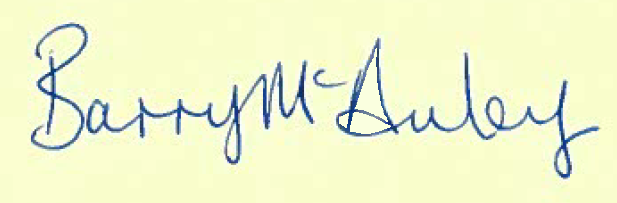 Barry McAuley